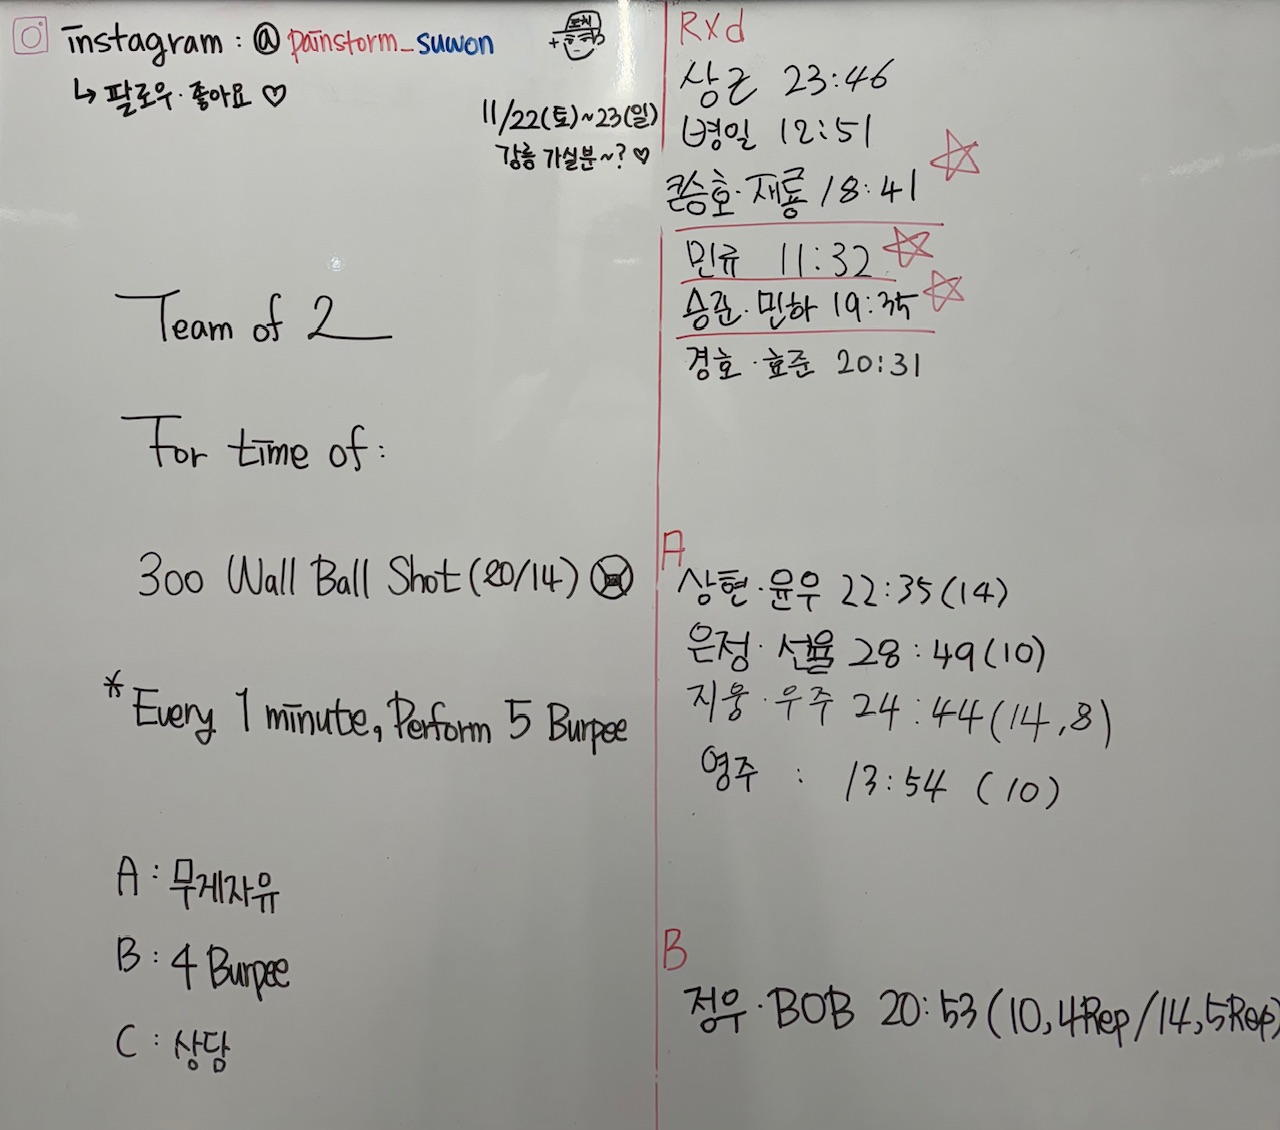 instagram : @painstorm_suwon
↳ 팔로우·좋아요 ♡
코치
11/22(토)~23(일)
강릉 가실분~? ♡
Team of 2
For time of:
300 Wall Ball Shot (20/14)
* Every 1 minute, Perform 5 Burpee
A : 무게자유
B : 4 Burpee
C : 상담
Rxd
상근 23:46
병일 12:51
큰승호·재룡 18:41 ☆
민규 11:32 ☆
승준·민하 19:35 ☆
경호·효준 20:31
A
상현·윤우 22:35(14)
은정·선율 28:49(10)
지웅·우주 24:44(14,8)
영주 : 13:54 (10)
B
정우·BOB 20:53(10,4Rep/14,5Rep)